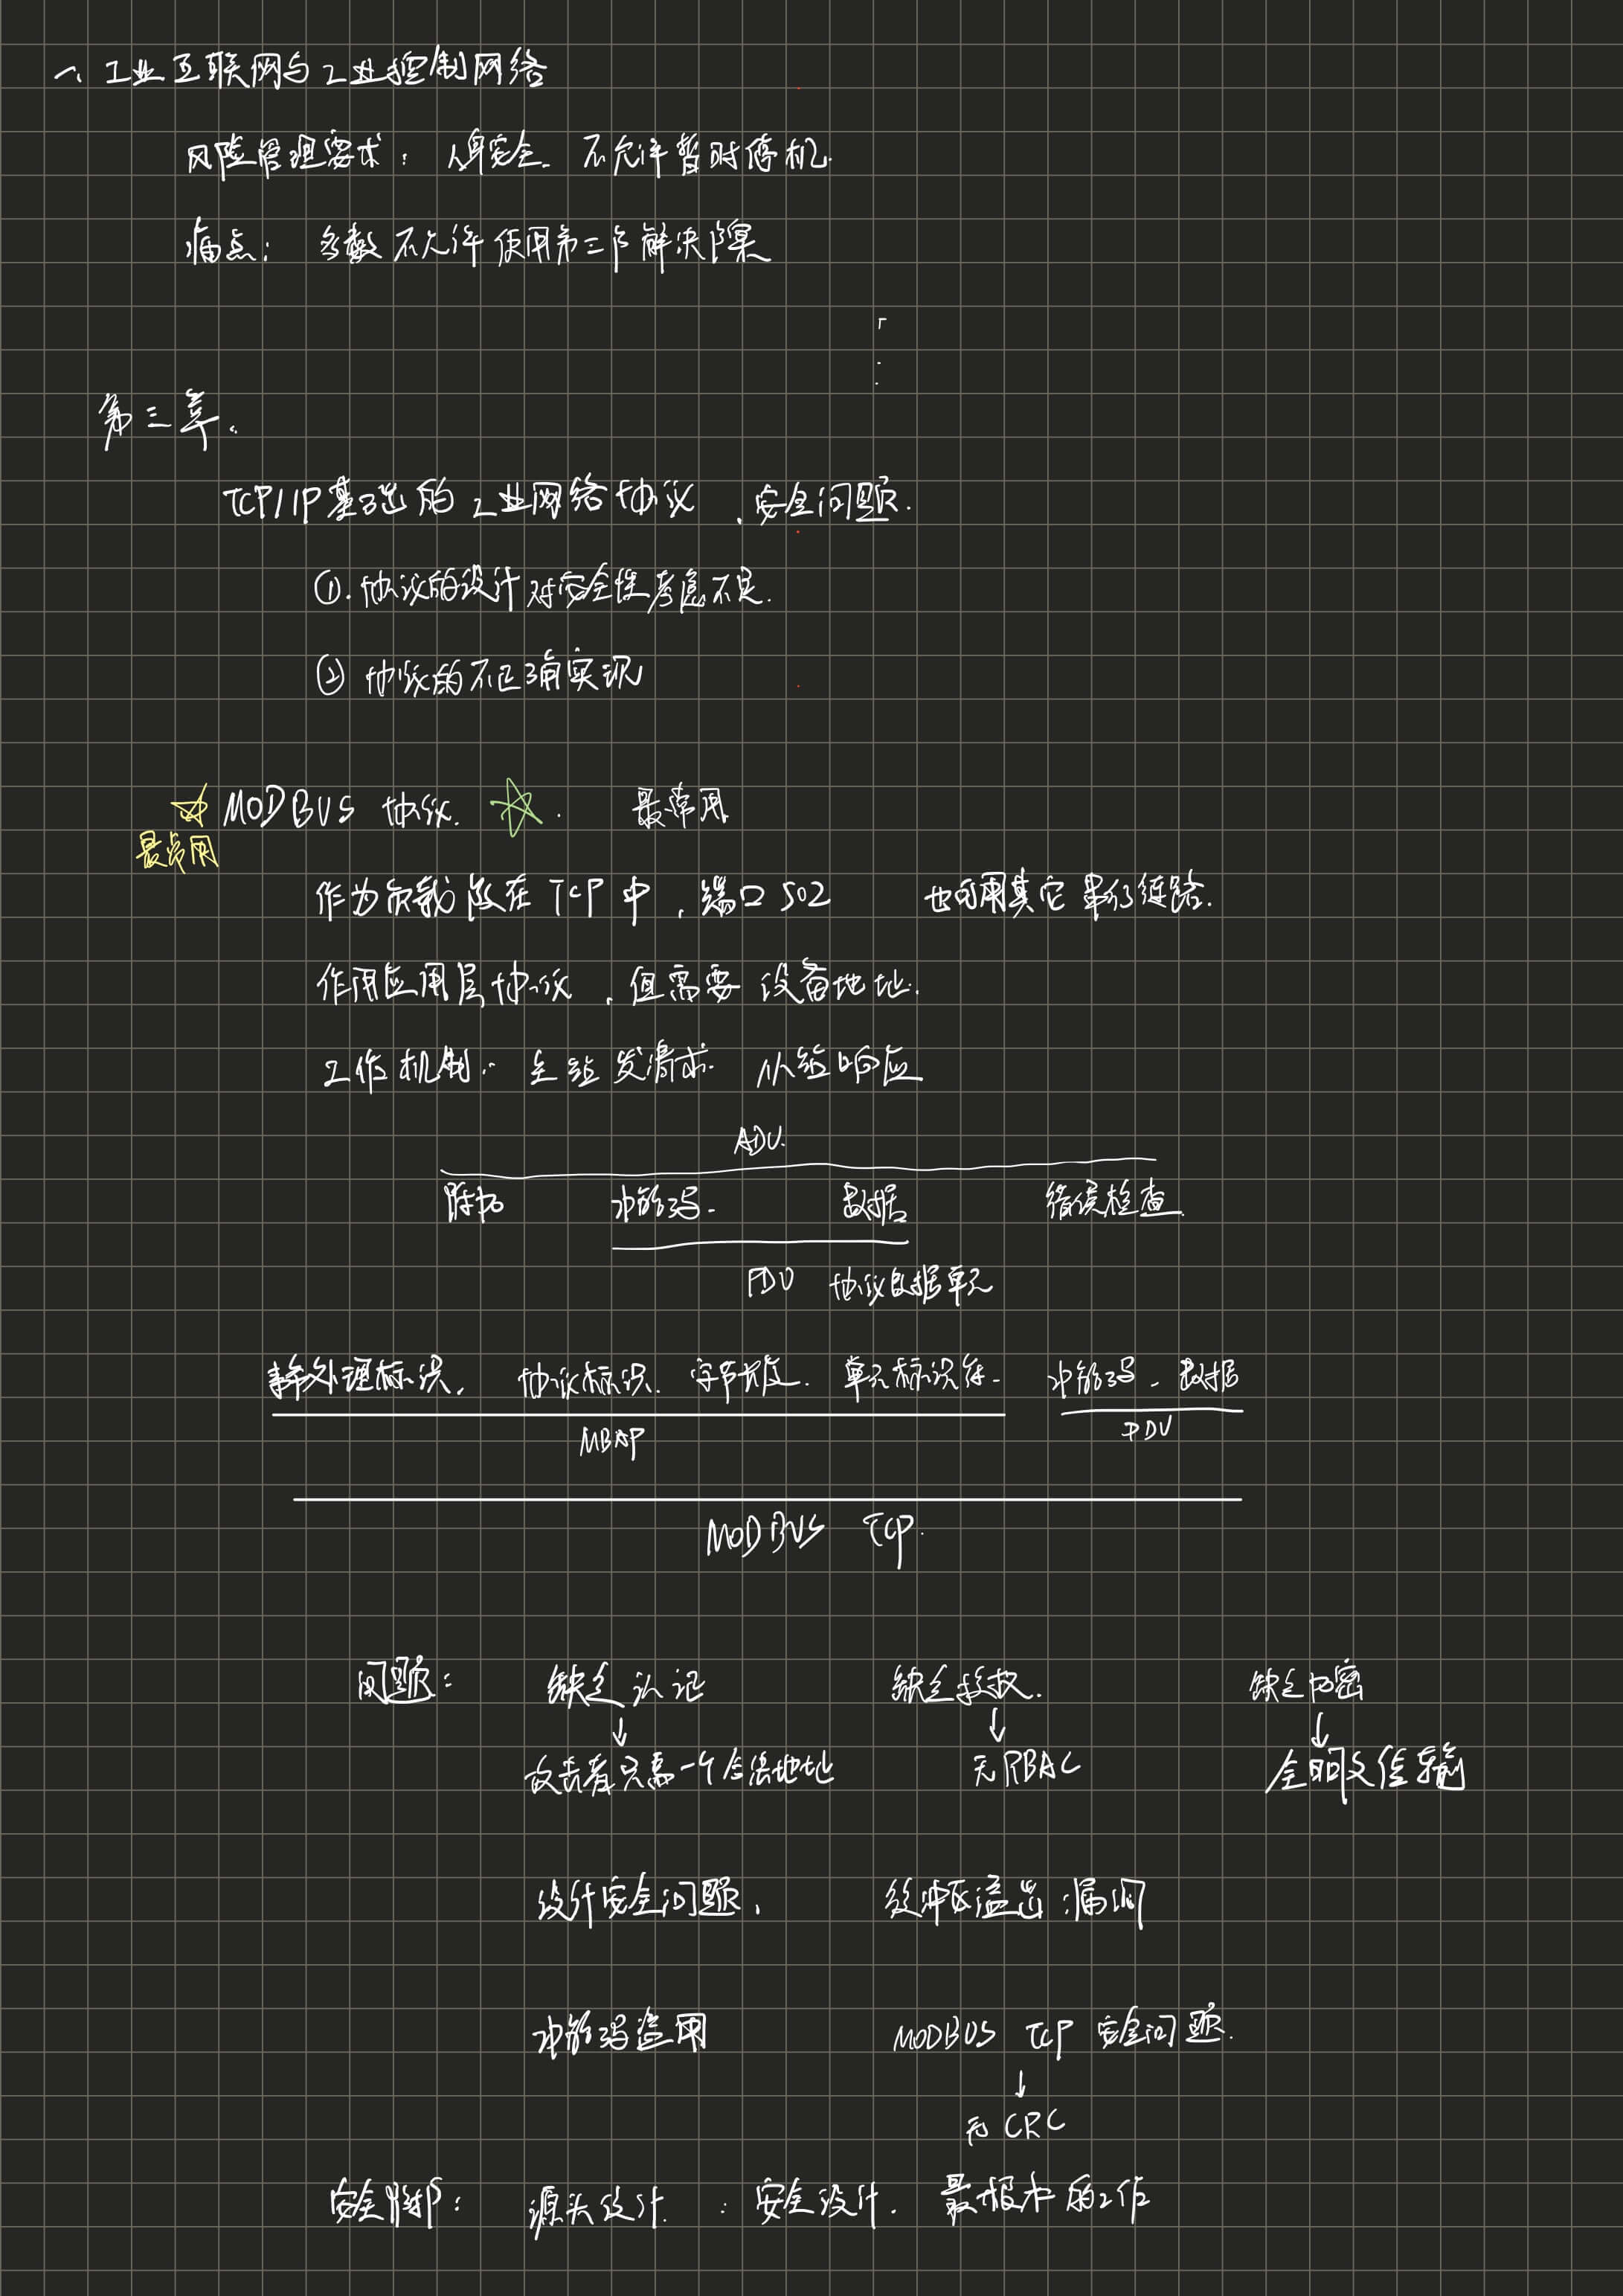 一、工业互联网与工业控制网络
风险管理要求： 人身安全、不允许暂时停机.
痛点： 多数不允许使用第三方解决方案
第三章.
TCP/IP基础的工业网络协议 、安全问题.
①. 协议的设计对安全性考虑不足.
② 协议的不正确实现
MODBUS 协议. 最常用
最常用
作为负载放在TCP中，端口502 也可用其它串行链路.
作用应用层协议，但需要设备地址.
工作机制： 主站发请求. 从站响应
ADU.
附加 功能码. 数据 错误检查.
PDU 协议数据单元
事务处理标识， 协议标识. 字节长度. 单元标识符. 功能码. 数据
MBAP PDU
MODBUS TCP.
问题： 缺乏认证 缺乏授权. 缺乏加密
↓ ↓ ↓
攻击者只需一个合法地址 无RBAC 全明文传输
设计安全问题， 缓冲区溢出漏洞
功能码滥用 MODBUS TCP 安全问题.
↓
无 CRC
安全防护： 源头设计. : 安全设计. 最根本的工作